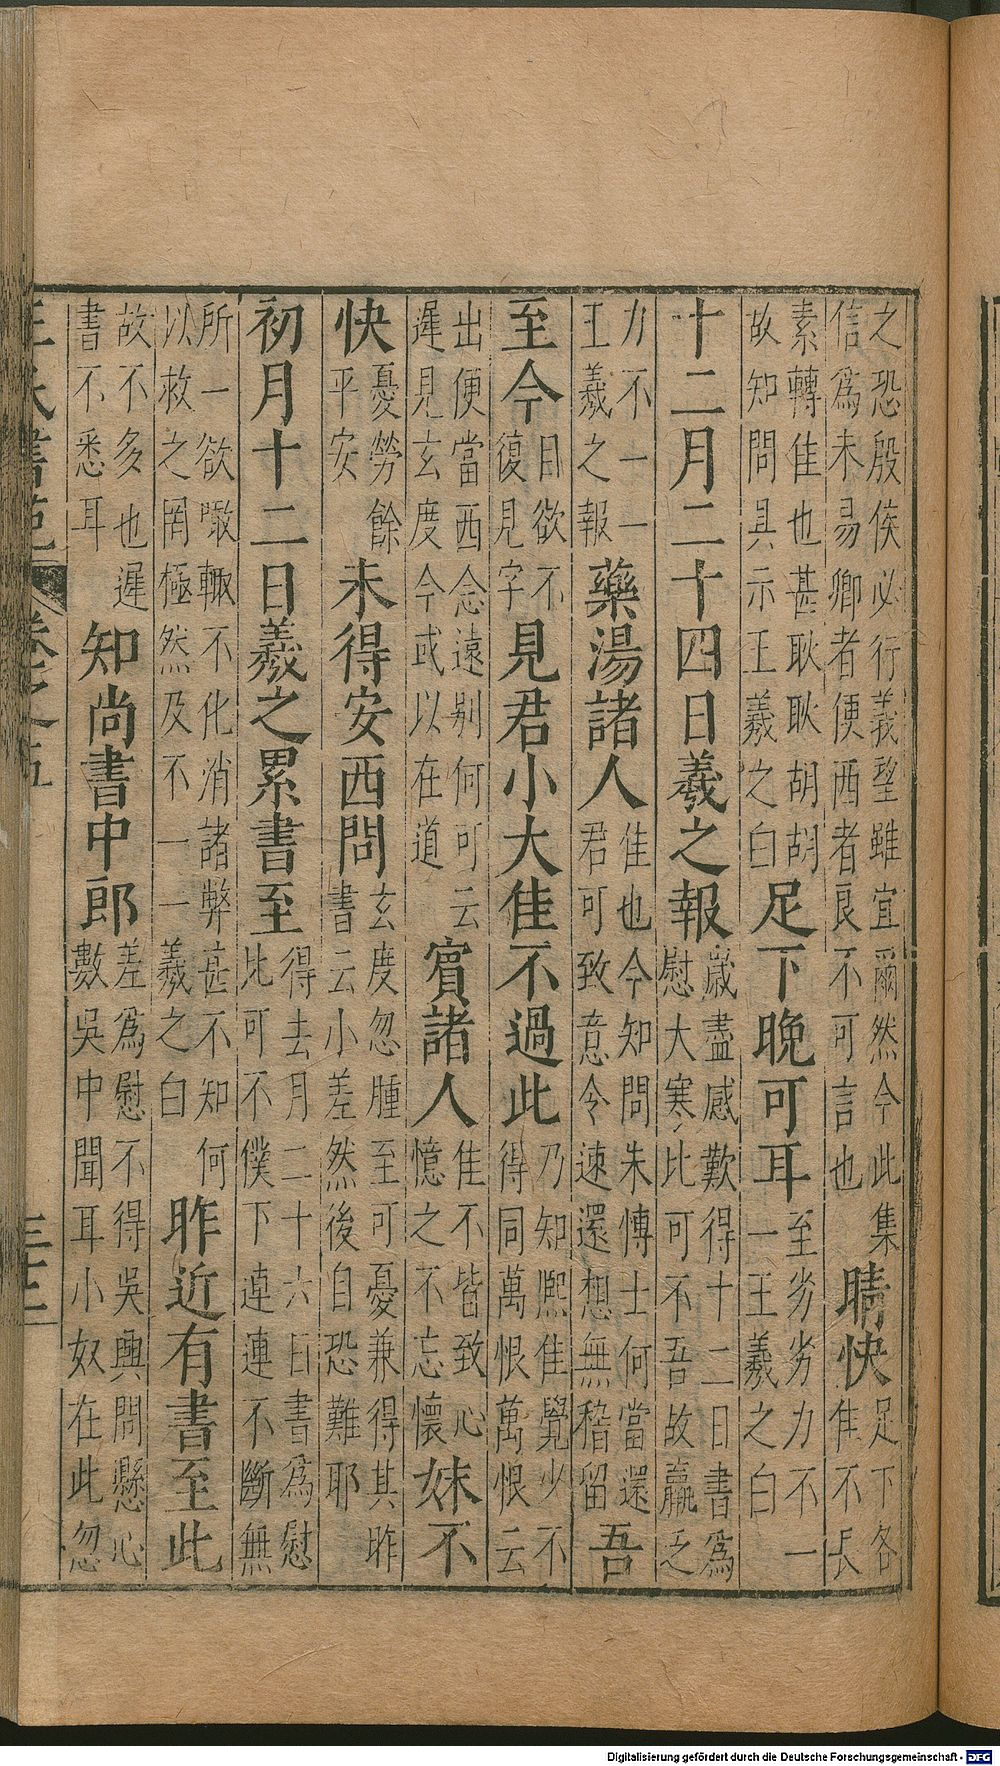 之恐殷侯必行義望雖宜爾然今此集
信爲未易卿者便西者良不可言也
晴快
足下各
佳不長
素轉佳也甚耿耿胡胡
故知問具示王羲之白
足下晚可耳
至劣劣力不一
一王羲之白
十二月二十四日羲之報
歲盡感歎得十二日書爲
慰大寒比可不吾故羸乏
力不一一
王羲之報
藥湯諸人
佳也今知問朱博士何當還
君可致意令速還想無稽留
吾
至今
目欲不
復見字
見君小大佳不過此
乃知熙佳覺少不
得同萬恨萬恨云
出便當西念遠别何可云
遲見玄度今或以在道
賓諸人
佳不皆致心
憶之不忘懷
妹不
快
憂勞餘
平安
未得安西問
玄度忽腫至可憂兼得其昨
書云小差然後自恐難耶
初月十二日羲之累書至
得去月二十六日書爲慰
比可不僕下連連不斷無
所一欲噉輙不化消諸弊甚不知何
以救之罔極然及不一一羲之白
昨近有書至此
故不多也遲
書不悉耳
知尚書中郎
差爲慰不得吳興問懸心
數吳中聞耳小奴在此忽
王氏書苑 卷之五
Digitalisierung gefördert durch die Deutsche Forschungsgemeinschaft - DFG